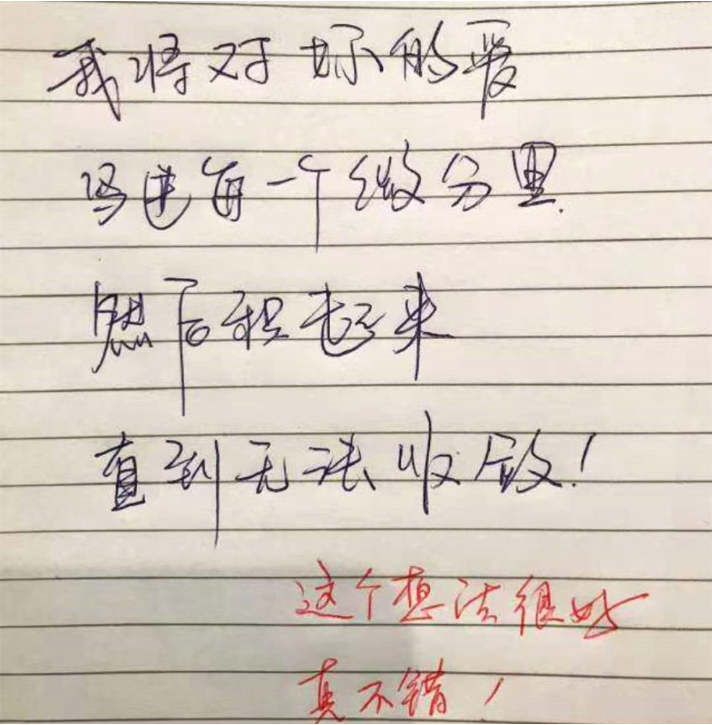 我将对你的爱
写进每一个微分里
然后积起来
直到无法收敛!
这个想法很好
真不错!